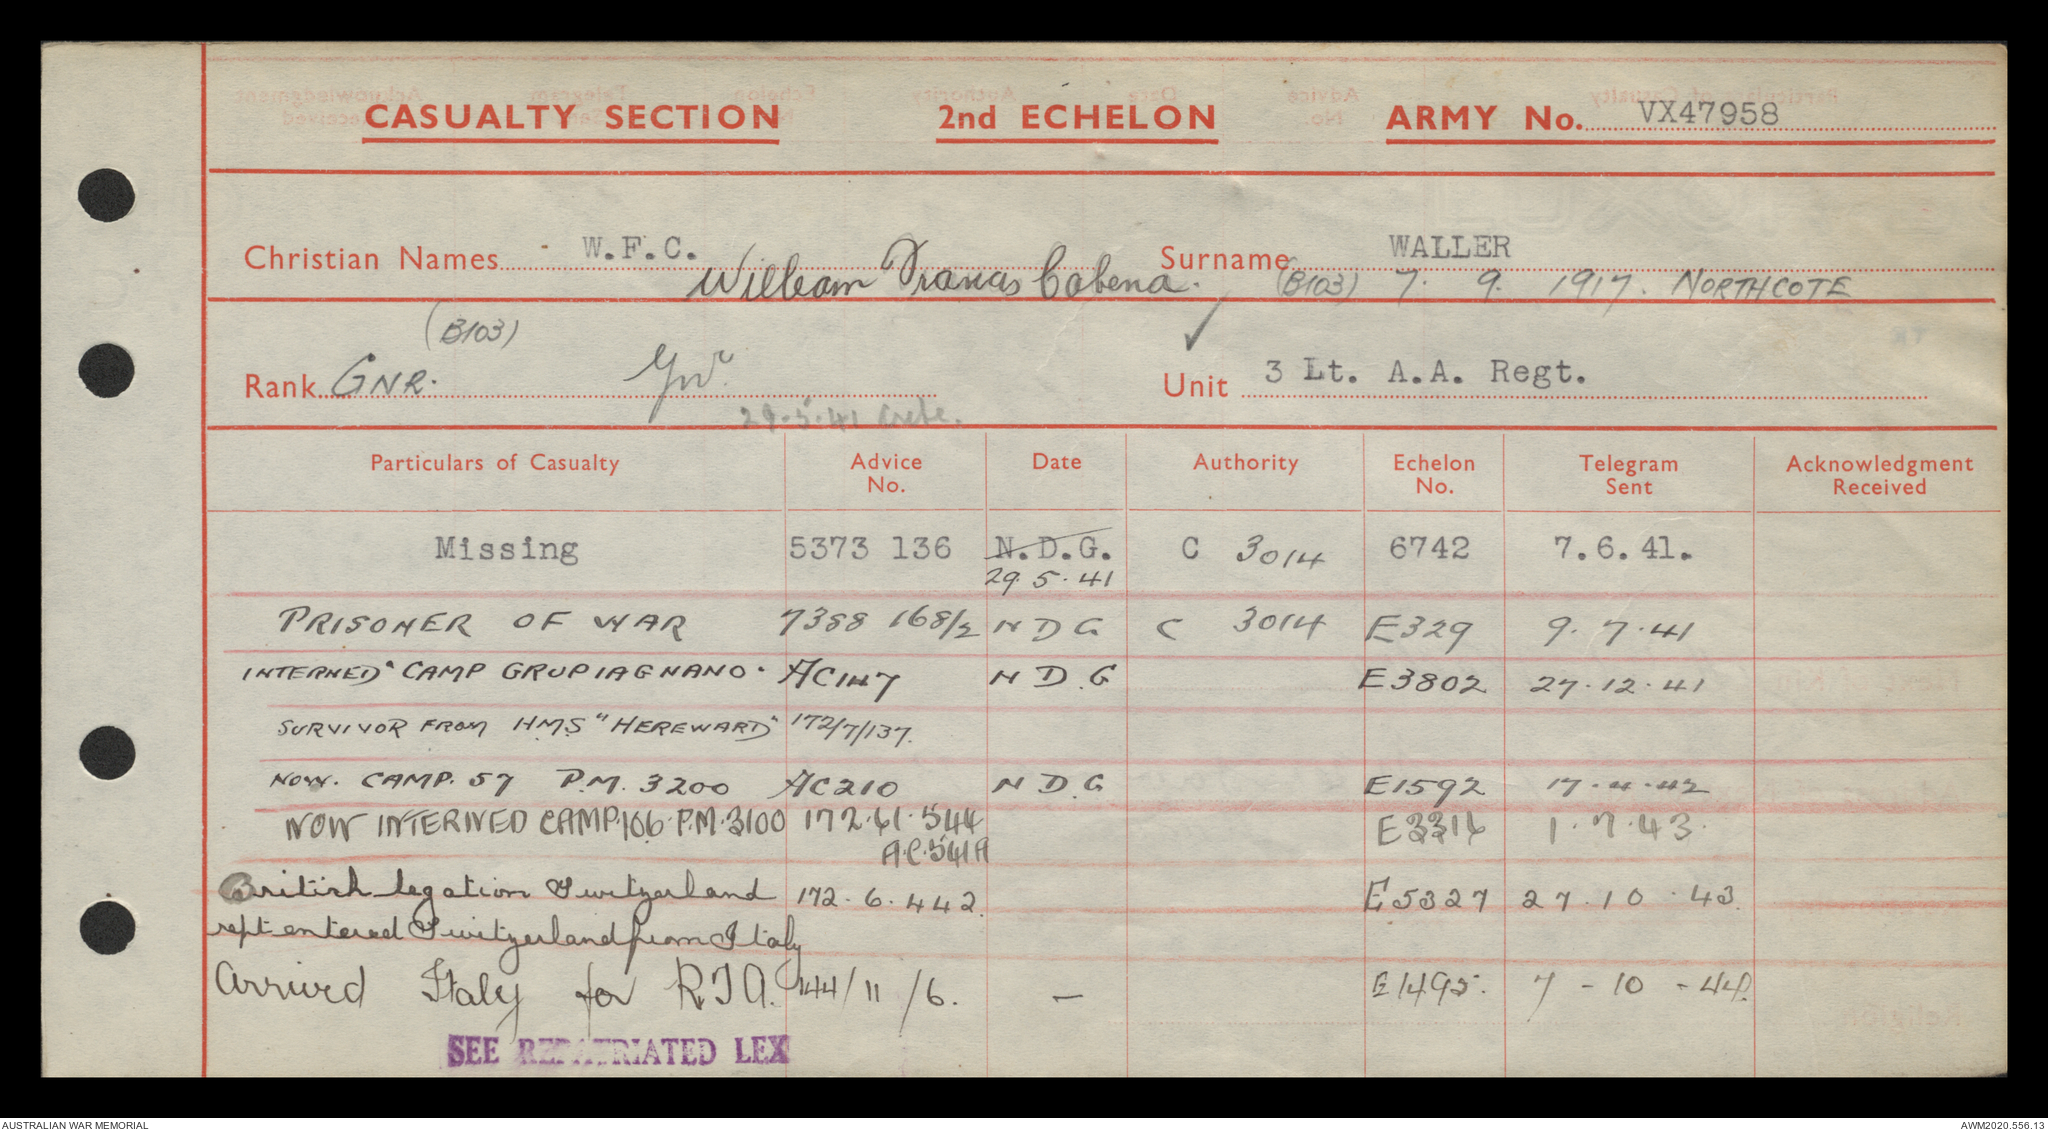 CASUALTY SECTION 2nd ECHELON ARMY No. VX47958
Christian Names W.F.C. Surname WALLER
William Francis Cabena. (B103) 7. 9. 1917. NORTHCOTE
(B103)
Rank GNR. Gnr. Unit 3 Lt. A.A. Regt.
29.5.41 Crete.
Particulars of Casualty Advice No. Date Authority Echelon No. Telegram Sent Acknowledgment Received
Missing 5373 136 N.D.G. C 3014 6742 7.6.41.
29.5.41
PRISONER OF WAR 7388 168/2 N D G C 3014 E329 9.7.41
INTERNED "CAMP GRUPIAGNANO" AC147 N D.G E3802 27.12.41
SURVIVOR FROM HMS "HEREWARD" 172/7/137.
NOW. CAMP. 57 P.M. 3200 AC210 N D.G E1592 17.4.42
NOW INTERNED CAMP.106.P.M.3100 172.61.544 E3316 1.7.43.
A.C.541A
British legation Switzerland 172.6.442. E5327 27.10.43.
rept entered Switzerland from Italy
Arrived Italy for R.T.A. 144/11/6. — E1495. 7-10-44.
SEE REPATRIATED LEX
AUSTRALIAN WAR MEMORIAL AWM2020.556.13